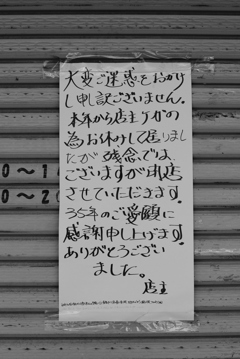 大変ご迷惑をおかけ
し申訳ございません。
本年から店主ケガの
為お休みして居りまし
たが残念では
ございますが閉店
させていただきます。
35年のご愛顧に
感謝申し上げます。
ありがとうござい
ました。
店主
0〜1
0〜2